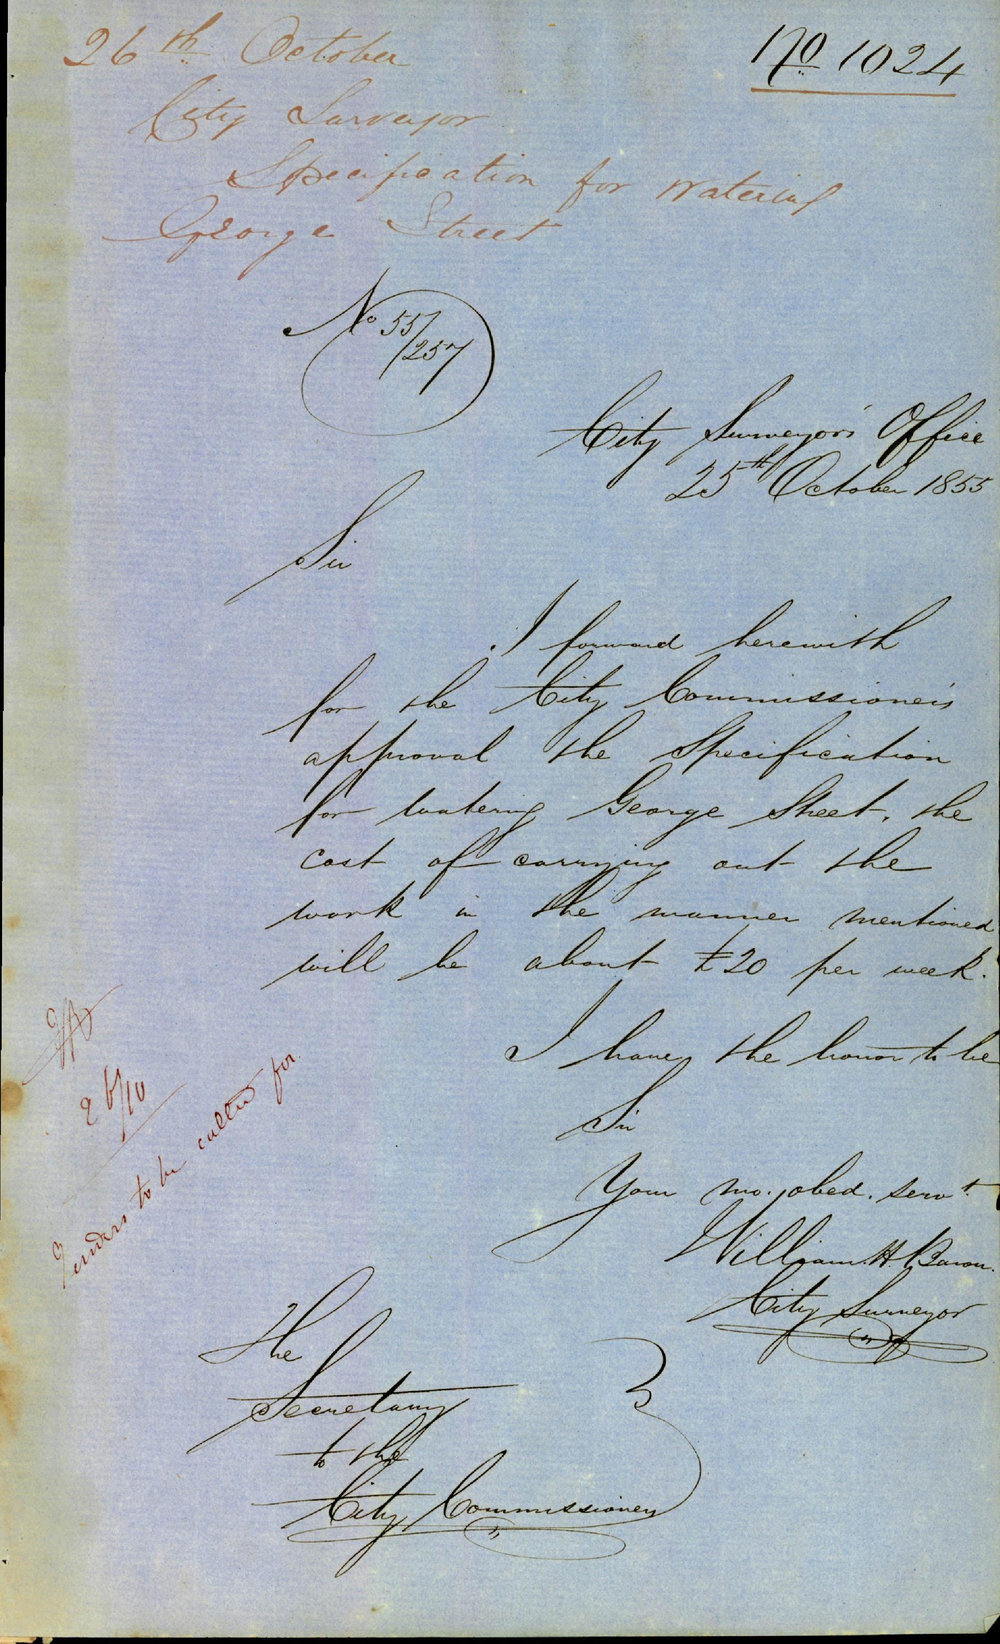 26th October
No 1024
City Surveyor
Specification for watering
George Street
No 55/257
City Surveyor's Office
25th October 1855
Sir
I forward herewith
for the City Commissioners
approval the Specification
for watering George Street, the
cost of carrying out the
work in the manner mentioned
will be about £20 per week.
I have the honor to be
Sir
Your mo. obed. servt.
William H. Baron.
City Surveyor
26/10
Tenders to be called for.
The
Secretary
to the
City Commissioners